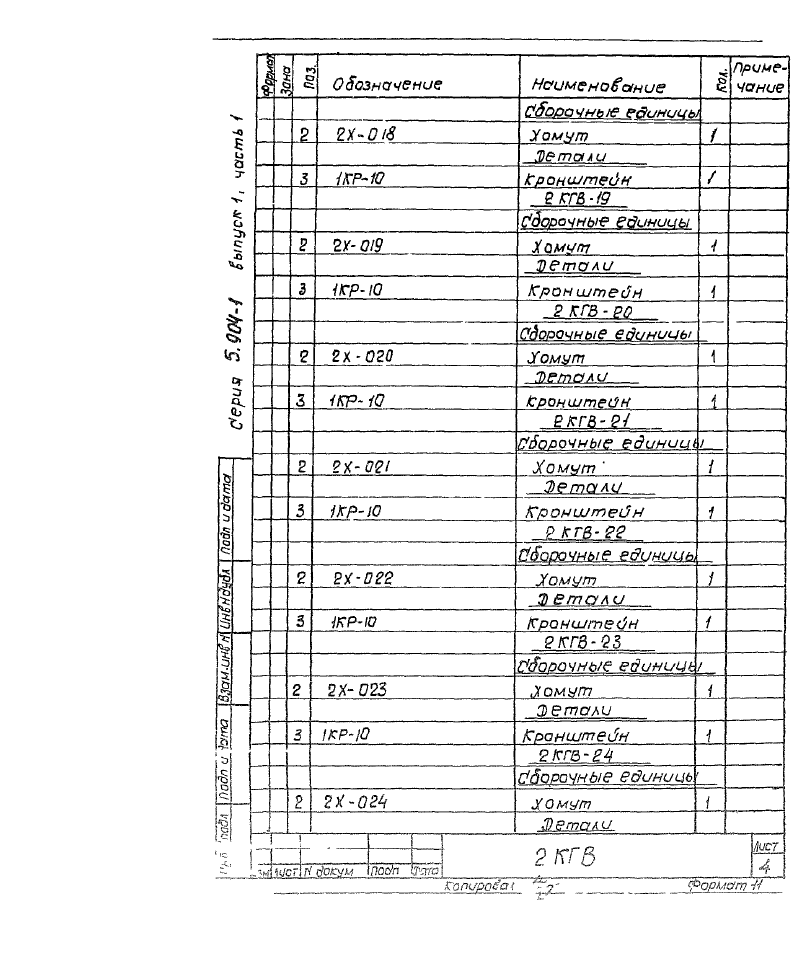 Серия 5.904-1 выпуск 1, часть 1
Формат Зона Поз. Обозначение Наименование Кол. Приме-
чание
Сборочные единицы
2 2Х-018 Хомут 1
Детали
3 1КР-10 Кронштейн 1
2 КГВ-19
Сборочные единицы
2 2Х-019 Хомут 1
Детали
3 1КР-10 Кронштейн 1
2 КГВ-20
Сборочные единицы
2 2Х-020 Хомут 1
Детали
3 1КР-10 Кронштейн 1
2 КГВ-21
Сборочные единицы
2 2Х-021 Хомут 1
Детали
3 1КР-10 Кронштейн 1
2 КГВ-22
Сборочные единицы
2 2Х-022 Хомут 1
Детали
3 1КР-10 Кронштейн 1
2 КГВ-23
Сборочные единицы
2 2Х-023 Хомут 1
Детали
3 1КР-10 Кронштейн 1
2 КГВ-24
Сборочные единицы
2 2Х-024 Хомут 1
Детали
Подп и дата
Инв н дубл
Взам.инв н
Подп и дата
подл
лист N докум подп дата
2 КГВ
Лист
4
Копировал
Формат 11